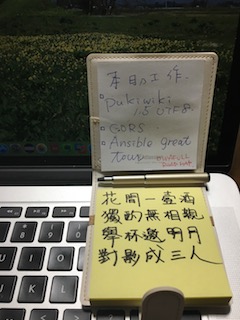 本日の工作.
Pukiwiki
1.5 UTF8
GDRS
Ansible great
tour
花間一壺酒
獨酌無相親
舉杯邀明月
對影成三人